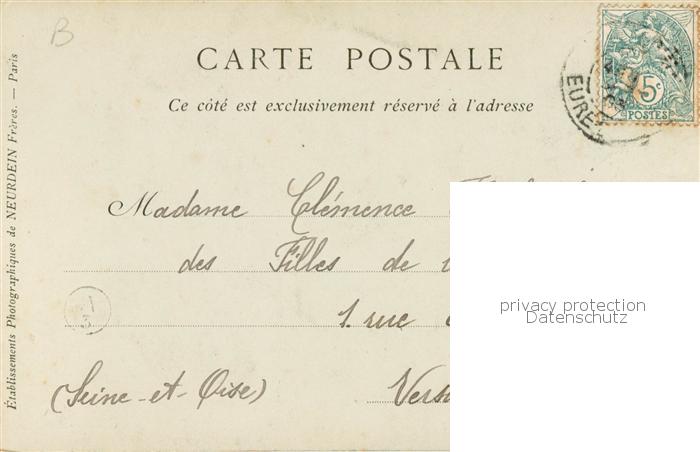 B
CARTE POSTALE
Ce côté est exclusivement réservé à l'adresse
5c
POSTES
EURE
Madame Clémence
des Filles de
1. rue
(Seine-et-Oise) Vers
1
3
privacy protection
Datenschutz
Établissements Photographiques de NEURDEIN Frères. — Paris